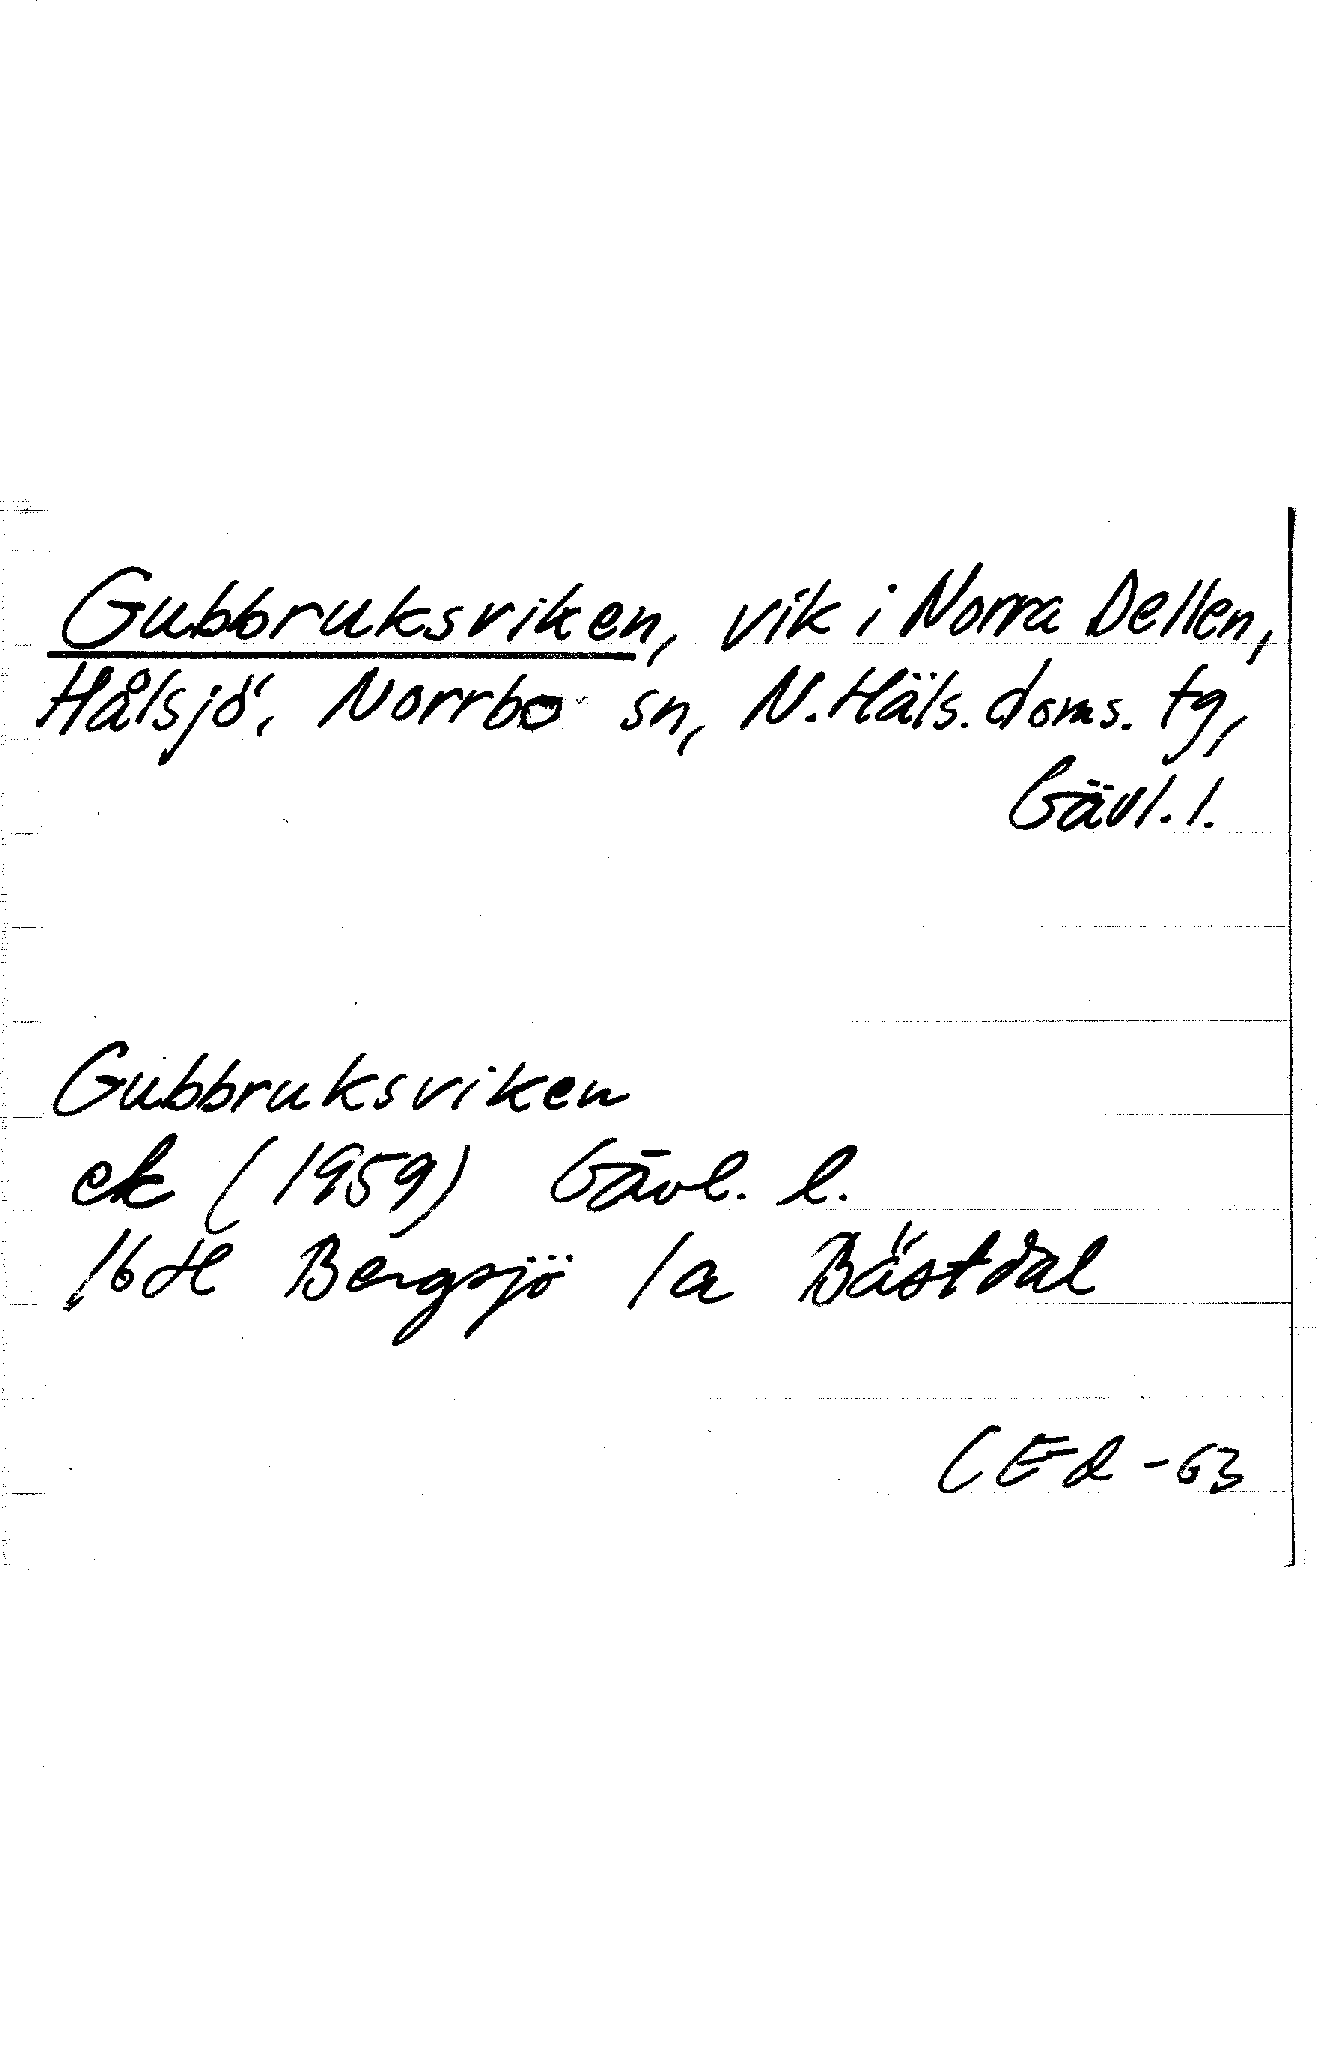 Gubbruksviken, vik i Norra Dellen,
Hålsjö, Norrbo sn, N. Häls. doms. tg,
Gävl. l.
Gubbruksviken
ek (1959) Gävl. l.
16H Bergsjö 1a Bästdal
CEd -63